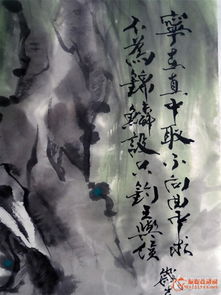 寧在直中取不向曲中求
不為錦鱗設只釣王與侯
歲